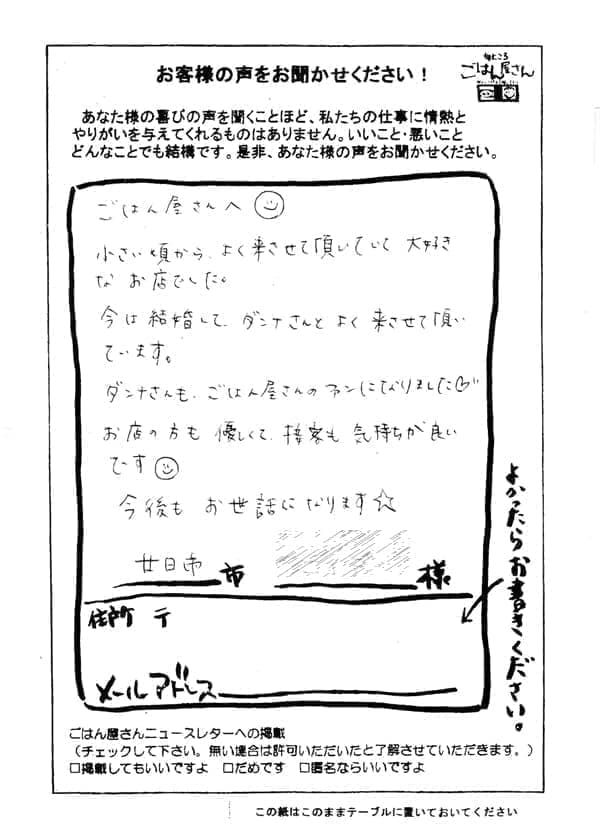 お客様の声をお聞かせください！
ごはん屋さん
あなた様の喜びの声を聞くことほど、私たちの仕事に情熱と
やりがいを与えてくれるものはありません。いいこと・悪いこと
どんなことでも結構です。是非、あなた様の声をお聞かせください。
ごはん屋さんへ
小さい頃から、よく来させて頂いていて 大好き
な お店でした。
今は結婚して、ダンナさんと よく 来させて頂い
ています。
ダンナさんも、ごはん屋さんのファンになりました♡
お店の方も 優しくて、接客も 気持ちが良い
です
今後も お世話になります☆
廿日市 市 様
よかったらお書きください。
住所 〒
メールアドレス
ごはん屋さんニュースレターへの掲載
（チェックして下さい。無い場合は許可いただいたと了解させていただきます。）
□掲載してもいいですよ □だめです □匿名ならいいですよ
この紙はこのままテーブルに置いておいてください